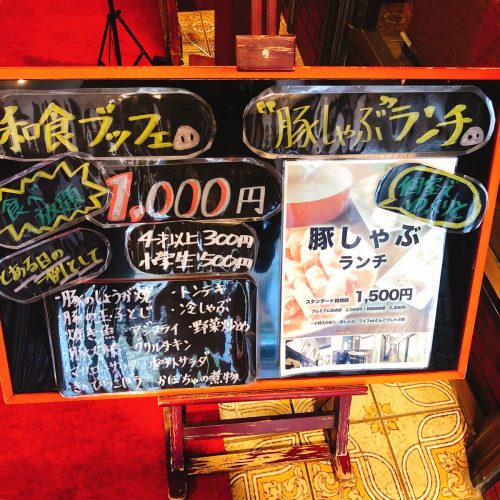 和食ブッフェ
食べ放題
1,000円
4才以上 300円
小学生 500円
とある日の一例として
豚のしょうが焼 ・トンテキ
・冷しゃぶ
焼き魚 アジフライ ・野菜炒め
グリルチキン
マカローニサラダ ポテトサラダ
きんぴらごぼう かぼちゃの煮物
"豚しゃぶ"ランチ
個室でゆっくりと
豚しゃぶ
ランチ
スタンダード銘柄豚 1,500円
プレミアム銘柄豚 2,000円 / 特選銘柄豚 2,300円